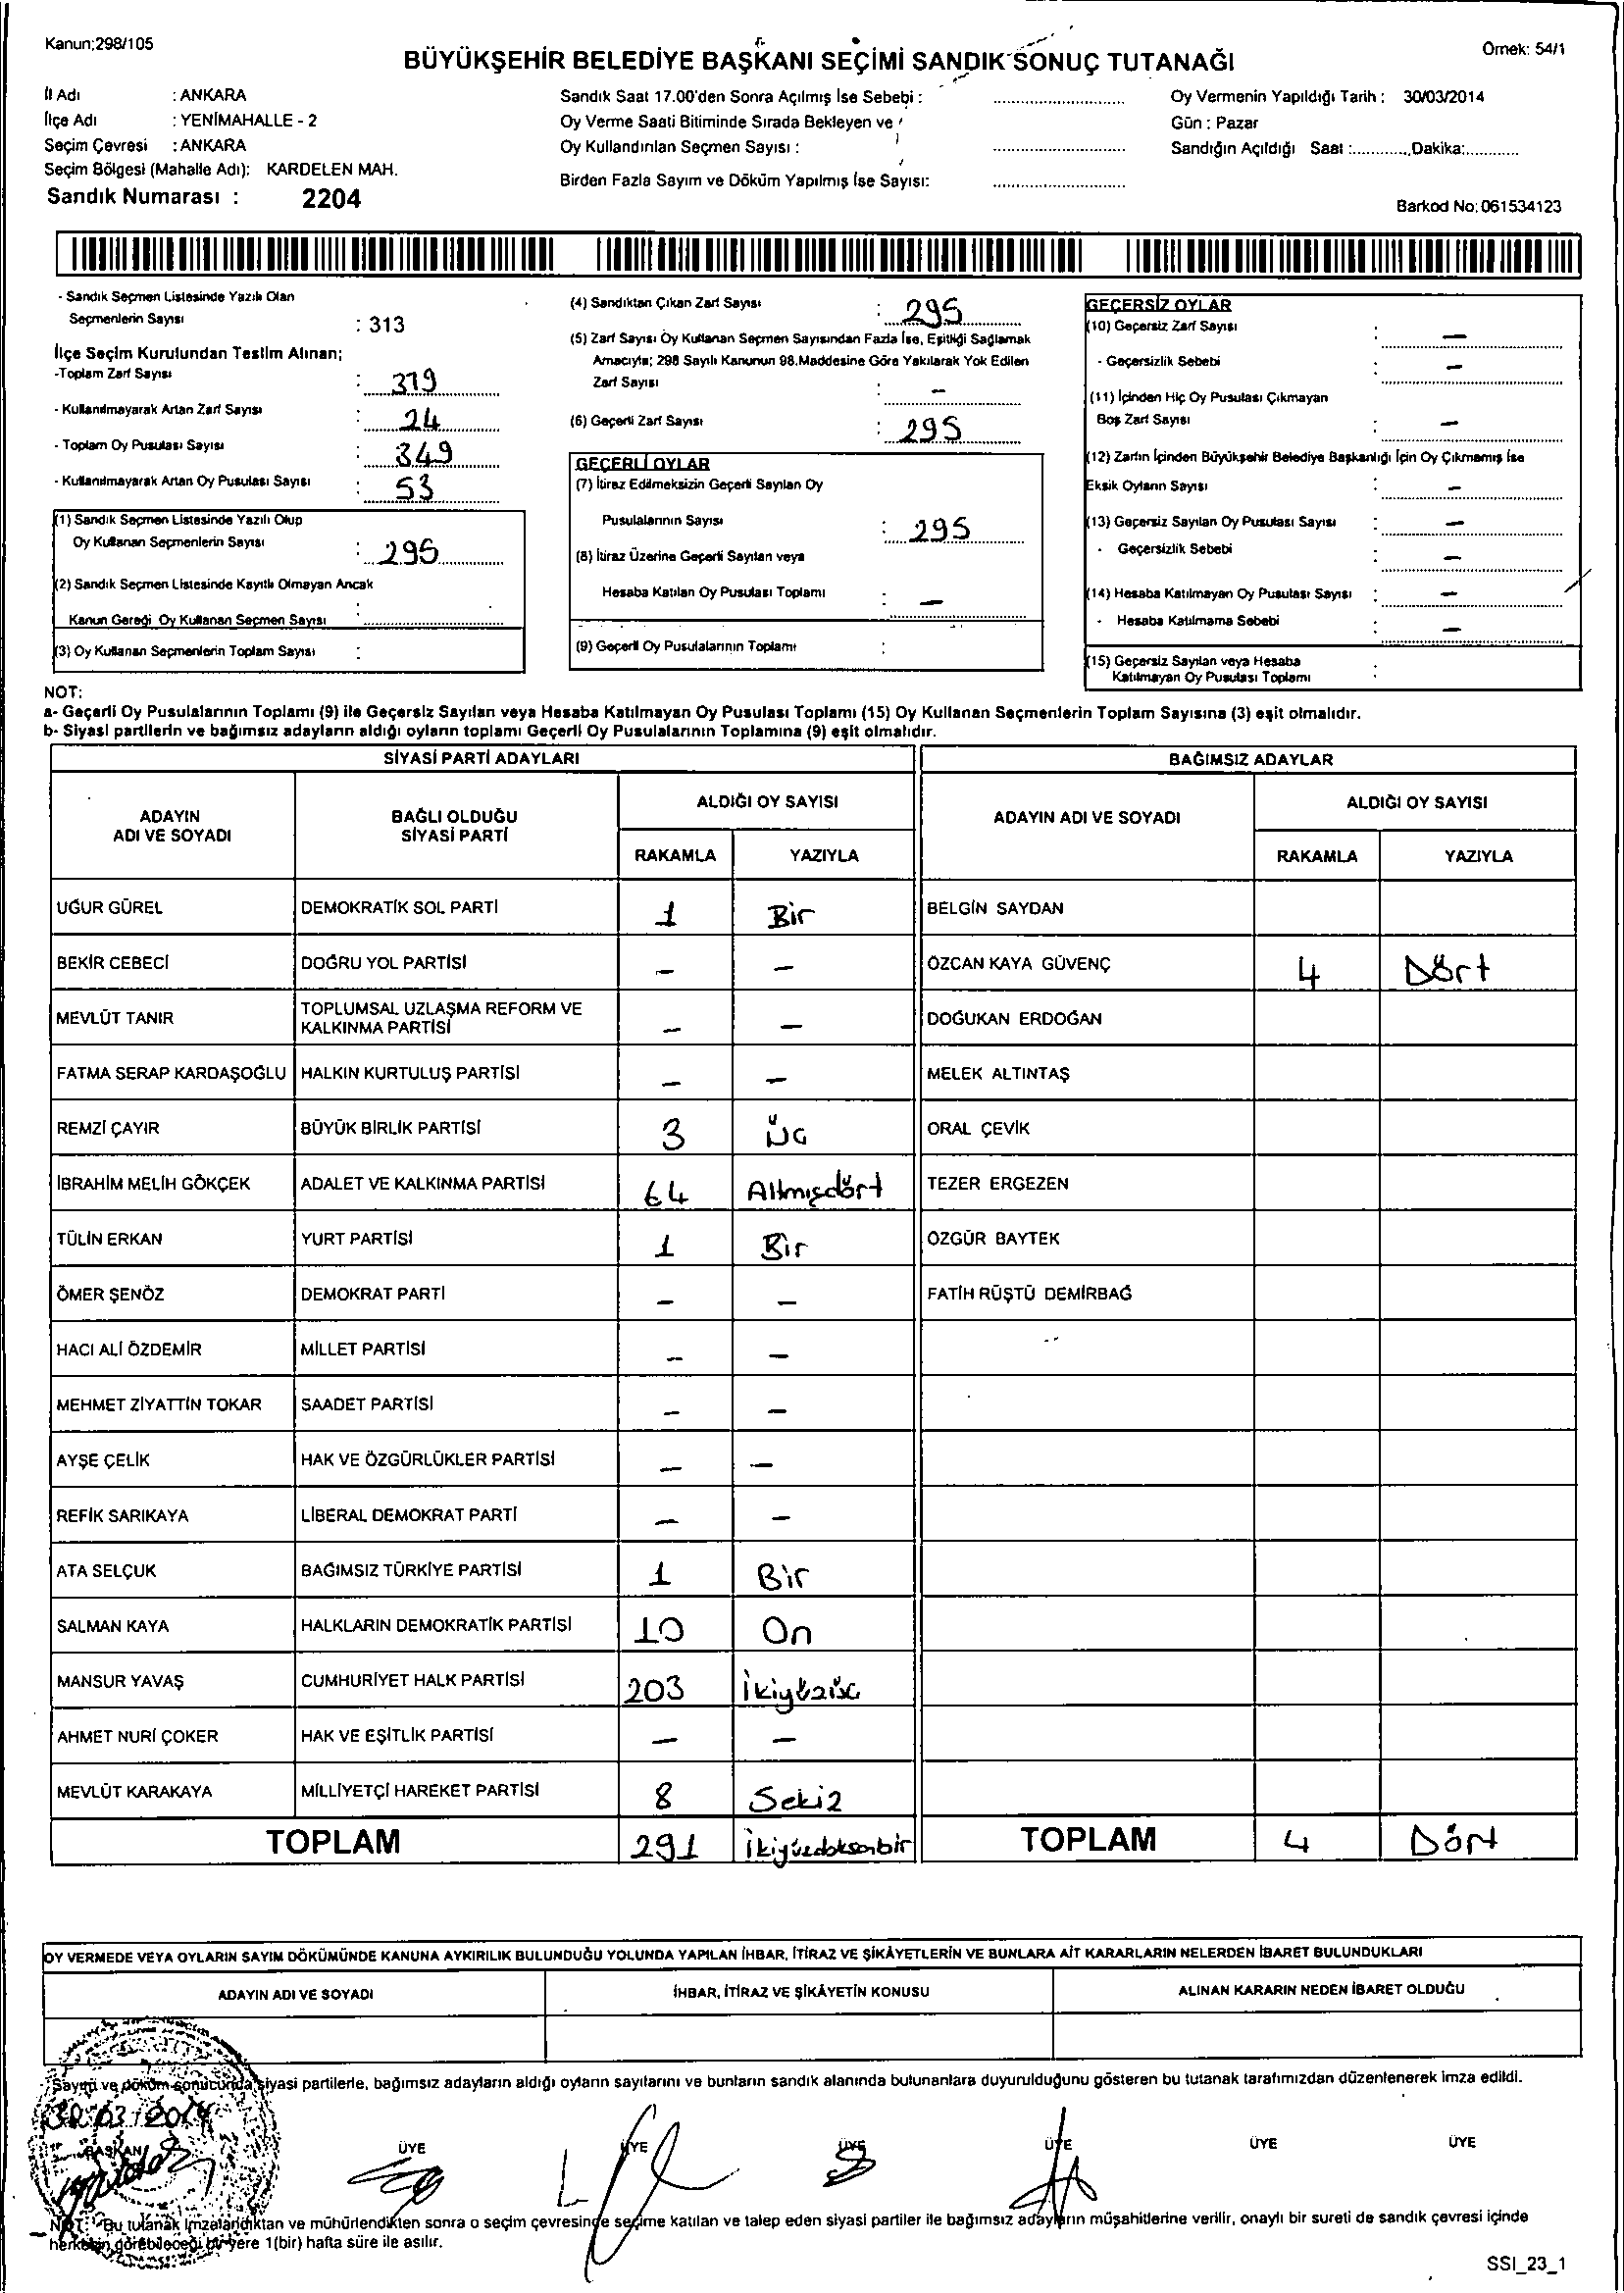 Kanun;298/105
Örnek: 54/1
BÜYÜKŞEHİR BELEDİYE BAŞKANI SEÇİMİ SANDIK SONUÇ TUTANAĞI
İl Adı : ANKARA
İlçe Adı : YENİMAHALLE - 2
Seçim Çevresi : ANKARA
Seçim Bölgesi (Mahalle Adı): KARDELEN MAH.
Sandık Numarası : 2204
Sandık Saat 17.00'den Sonra Açılmış İse Sebebi :
Oy Verme Saati Bitiminde Sırada Bekleyen ve
Oy Kullandırılan Seçmen Sayısı :
Birden Fazla Sayım ve Döküm Yapılmış İse Sayısı:
Oy Vermenin Yapıldığı Tarih : 30/03/2014
Gün : Pazar
Sandığın Açıldığı Saat :............Dakika:............
Barkod No: 061534123
- Sandık Seçmen Listesinde Yazılı Olan
Seçmenlerin Sayısı : 313
İlçe Seçim Kurulundan Teslim Alınan;
-Toplam Zarf Sayısı : 319
- Kullanılmayarak Artan Zarf Sayısı : 24
- Toplam Oy Pusulası Sayısı : 349
- Kullanılmayarak Artan Oy Pusulası Sayısı : 53
(1) Sandık Seçmen Listesinde Yazılı Olup
Oy Kullanan Seçmenlerin Sayısı : 295
(2) Sandık Seçmen Listesinde Kayıtlı Olmayan Ancak
Kanun Gereği Oy Kullanan Seçmen Sayısı :
(3) Oy Kullanan Seçmenlerin Toplam Sayısı :
(4) Sandıktan Çıkan Zarf Sayısı : 295
(5) Zarf Sayısı Oy Kullanan Seçmen Sayısından Fazla İse, Eşitliği Sağlamak
Amacıyla; 298 Sayılı Kanunun 98.Maddesine Göre Yakılarak Yok Edilen
Zarf Sayısı : -
(6) Geçerli Zarf Sayısı : 295
GEÇERLİ OYLAR
(7) İtiraz Edilmeksizin Geçerli Sayılan Oy
Pusulalarının Sayısı : 295
(8) İtiraz Üzerine Geçerli Sayılan veya
Hesaba Katılan Oy Pusulası Toplamı : -
(9) Geçerli Oy Pusulalarının Toplamı :
GEÇERSİZ OYLAR
(10) Geçersiz Zarf Sayısı : -
- Geçersizlik Sebebi : -
(11) İçinden Hiç Oy Pusulası Çıkmayan
Boş Zarf Sayısı : -
(12) Zarfın İçinden Büyükşehir Belediye Başkanlığı İçin Oy Çıkmamış İse
Eksik Oyların Sayısı : -
(13) Geçersiz Sayılan Oy Pusulası Sayısı : -
- Geçersizlik Sebebi : -
(14) Hesaba Katılmayan Oy Pusulası Sayısı : -
- Hesaba Katılmama Sebebi : -
(15) Geçersiz Sayılan veya Hesaba
Katılmayan Oy Pusulası Toplamı :
NOT:
a- Geçerli Oy Pusulalarının Toplamı (9) ile Geçersiz Sayılan veya Hesaba Katılmayan Oy Pusulası Toplamı (15) Oy Kullanan Seçmenlerin Toplam Sayısına (3) eşit olmalıdır.
b- Siyasi partilerin ve bağımsız adayların aldığı oyların toplamı Geçerli Oy Pusulalarının Toplamına (9) eşit olmalıdır.
SİYASİ PARTİ ADAYLARI
BAĞIMSIZ ADAYLAR
ADAYIN ADI VE SOYADI
BAĞLI OLDUĞU SİYASİ PARTİ
ALDIĞI OY SAYISI
ADAYIN ADI VE SOYADI
ALDIĞI OY SAYISI
RAKAMLA YAZIYLA RAKAMLA YAZIYLA
UĞUR GÜREL DEMOKRATİK SOL PARTİ 1 Bir BELGİN SAYDAN
BEKİR CEBECİ DOĞRU YOL PARTİSİ - - ÖZCAN KAYA GÜVENÇ 4 Dört
MEVLÜT TANIR TOPLUMSAL UZLAŞMA REFORM VE KALKINMA PARTİSİ - - DOĞUKAN ERDOĞAN
FATMA SERAP KARDAŞOĞLU HALKIN KURTULUŞ PARTİSİ - - MELEK ALTINTAŞ
REMZİ ÇAYIR BÜYÜK BİRLİK PARTİSİ 3 Üç ORAL ÇEVİK
İBRAHİM MELİH GÖKÇEK ADALET VE KALKINMA PARTİSİ 64 Altmışdört TEZER ERGEZEN
TÜLİN ERKAN YURT PARTİSİ 1 Bir ÖZGÜR BAYTEK
ÖMER ŞENÖZ DEMOKRAT PARTİ - - FATİH RÜŞTÜ DEMİRBAĞ
HACI ALİ ÖZDEMİR MİLLET PARTİSİ - -
MEHMET ZİYATTİN TOKAR SAADET PARTİSİ - -
AYŞE ÇELİK HAK VE ÖZGÜRLÜKLER PARTİSİ - -
REFİK SARIKAYA LİBERAL DEMOKRAT PARTİ - -
ATA SELÇUK BAĞIMSIZ TÜRKİYE PARTİSİ 1 Bir
SALMAN KAYA HALKLARIN DEMOKRATİK PARTİSİ 10 On
MANSUR YAVAŞ CUMHURİYET HALK PARTİSİ 203 İkiyüzüç
AHMET NURİ ÇOKER HAK VE EŞİTLİK PARTİSİ - -
MEVLÜT KARAKAYA MİLLİYETÇİ HAREKET PARTİSİ 8 Sekiz
TOPLAM 291 İkiyüzdoksanbir TOPLAM 4 Dört
OY VERMEDE VEYA OYLARIN SAYIM DÖKÜMÜNDE KANUNA AYKIRILIK BULUNDUĞU YOLUNDA YAPILAN İHBAR, İTİRAZ VE ŞİKÂYETLERİN VE BUNLARA AİT KARARLARIN NELERDEN İBARET BULUNDUKLARI
ADAYIN ADI VE SOYADI İHBAR, İTİRAZ VE ŞİKÂYETİN KONUSU ALINAN KARARIN NEDEN İBARET OLDUĞU
Sayım ve döküm sonucunda siyasi partilerle, bağımsız adayların aldığı oyların sayılarını ve bunların sandık alanında bulunanlara duyurulduğunu gösteren bu tutanak tarafımızdan düzenlenerek imza edildi.
30/03/2014
BAŞKAN ÜYE ÜYE ÜYE ÜYE ÜYE ÜYE
NOT: Bu tutanak imzalandıktan ve mühürlendikten sonra o seçim çevresinde seçime katılan ve talep eden siyasi partiler ile bağımsız adayların müşahitlerine verilir, onaylı bir sureti de sandık çevresi içinde
herkesin görebileceği bir yere 1(bir) hafta süre ile asılır.
SSI_23_1